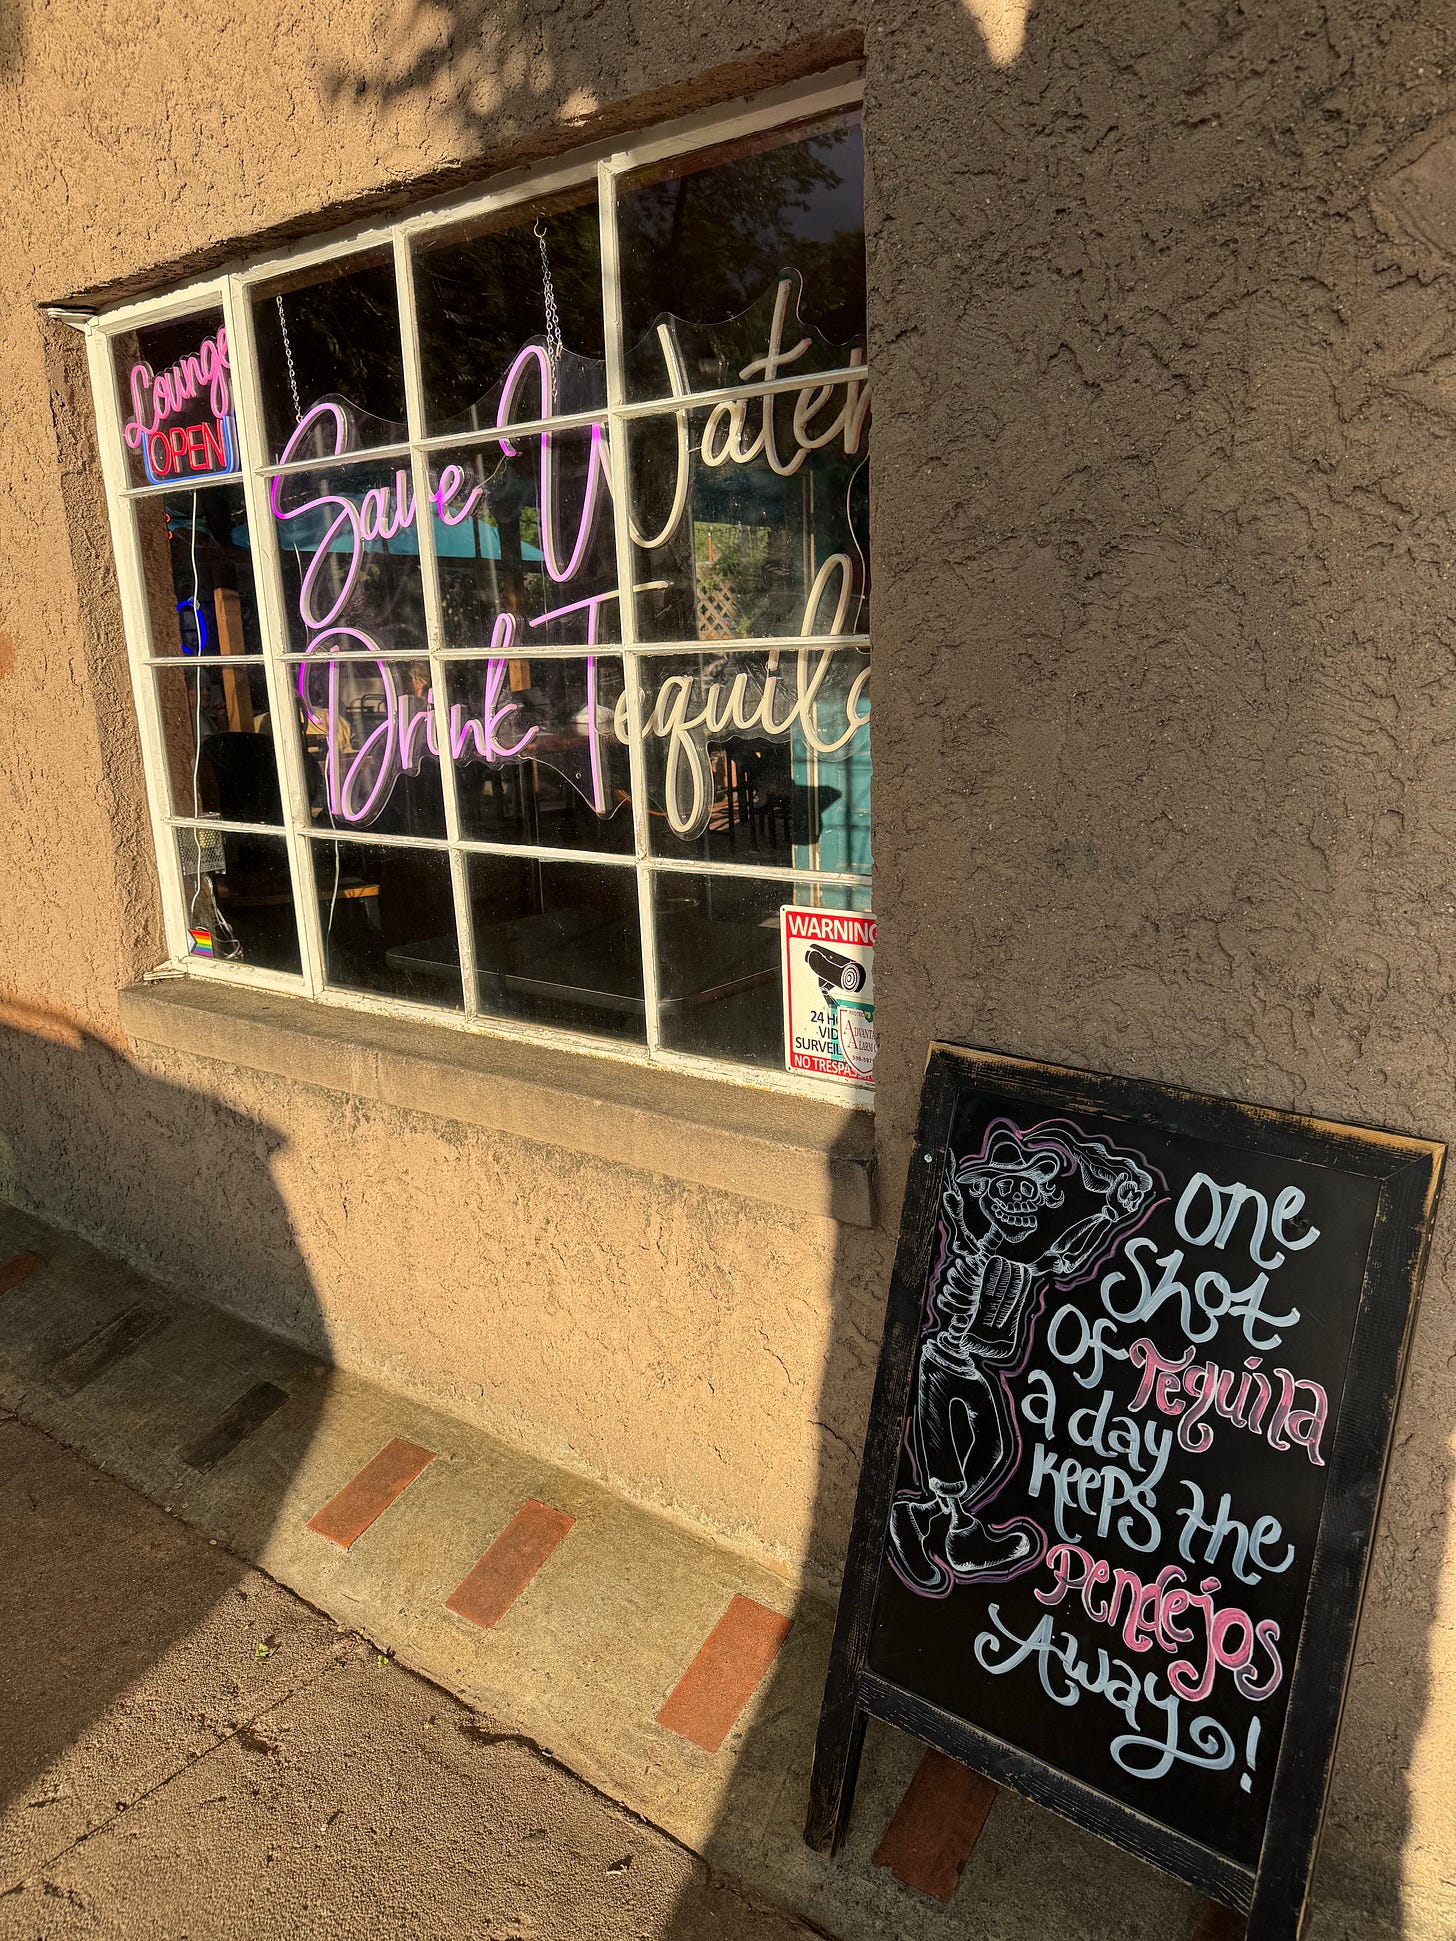 Lounge
OPEN
Save Water
Drink Tequila
WARNING
24 H
VID
SURVEIL
NO TRESPAS
ADVANTA
ALARM C
one
shot
Of Tequila
a day
Keeps the
Pendejos
Away!